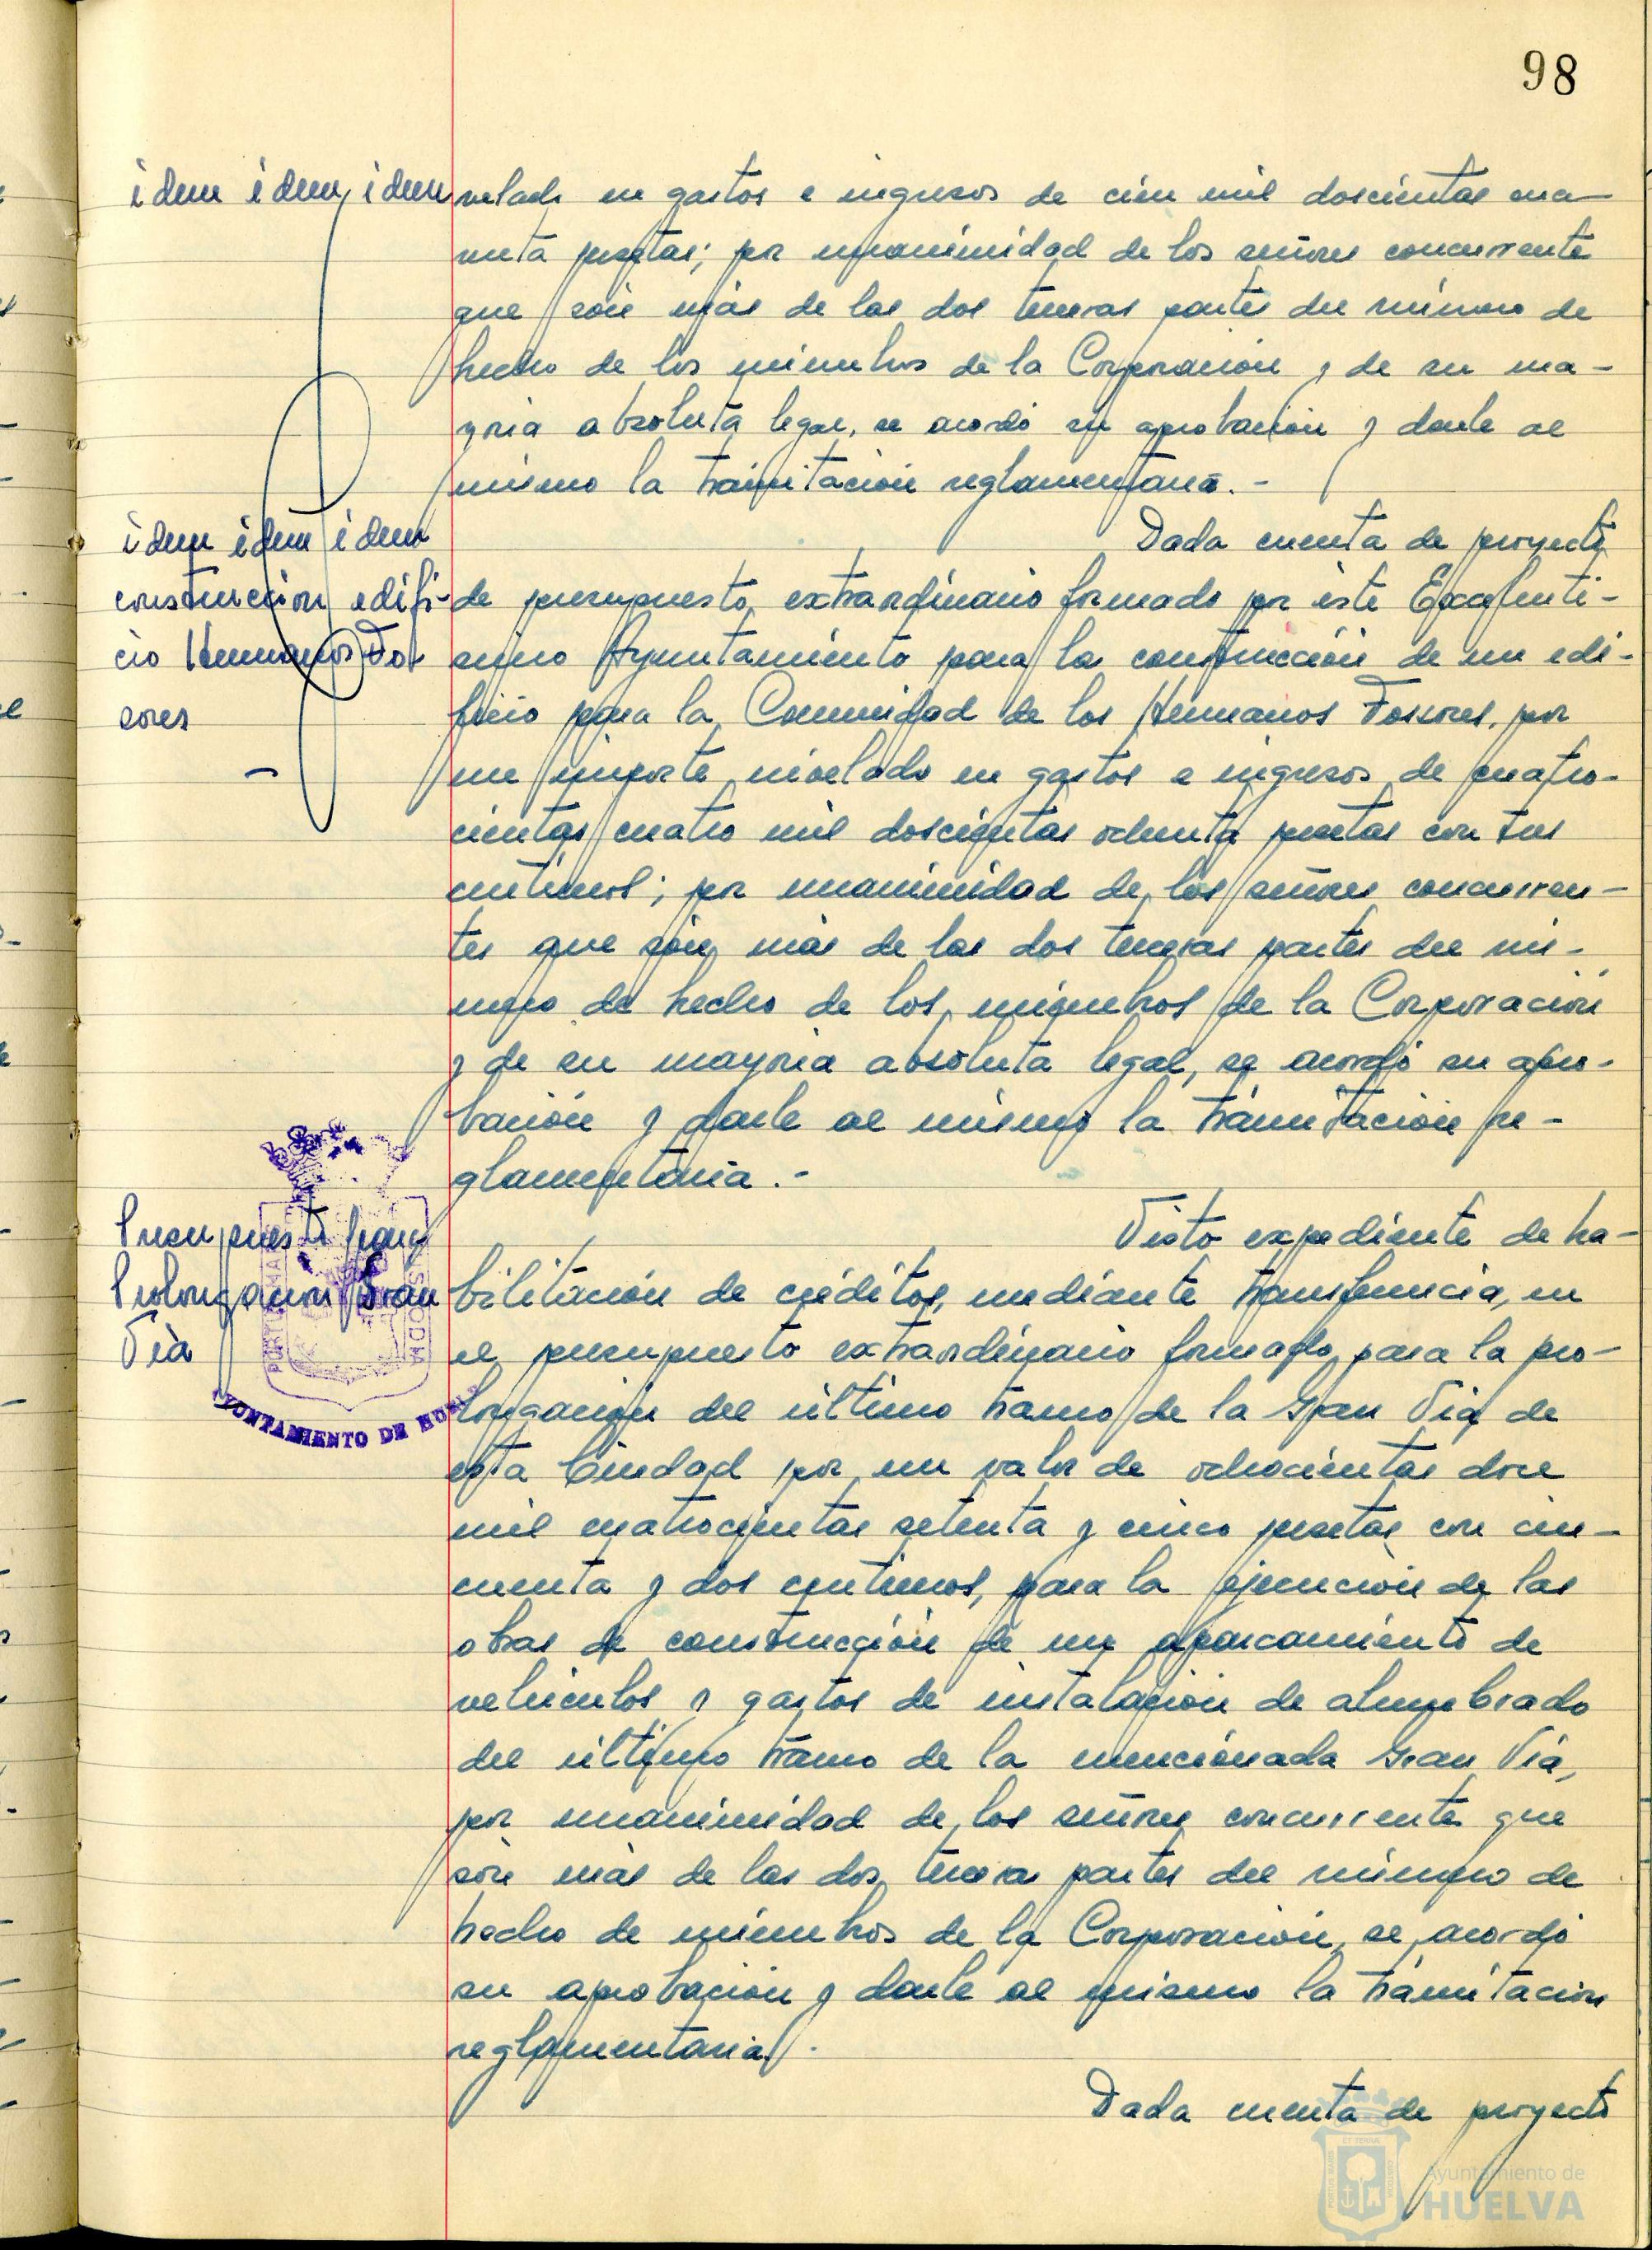 98
idem idem idem
velado en gastos e ingresos de cien mil doscientas cua-
renta pesetas; por unanimidad de los señores concurrentes
que són más de las dos terceras partes del número de
hecho de los miembros de la Corporación y de su ma-
yoria absoluta legal, se acordó su aprobación y darle al
mismo la trámitación reglamentaria.-
idem idem idem
construccion edifi-
cio Hermanos Fos
sores
Dada cuenta de proyecto
de presupuesto extraordinario formado por éste Excelentí-
simo Ayuntamiento para la construcción de un edi-
ficio para la Comunidad de los Hermanos Fossores, por
un importe nivelado en gastos e ingresos de cuatro-
cientas cuatro mil doscientas ochenta pesetas con tres
centimos; por unanimidad de los señores concurren-
tes que són más de las dos terceras partes del nú-
mero de hecho de los miembros de la Corporación
y de su mayoria absoluta legal, se acordó su apro-
bación y darle al mismo la trámitación re-
glamentaria.-
Presupuesto para
Prolongacion Gran
Via
AYUNTAMIENTO DE HUELVA
Visto expediente de ha-
bilitación de créditos, mediante transferencia, en
el presupuesto extraordinario formado para la pro-
longación del último tramo de la Gran Via de
esta Ciudad por un valor de ochocientas doce
mil cuatrocientas setenta y cinco pesetas con cin-
cuenta y dos centimos, para la ejecución de las
obras de construcción de un aparcamiento de
vehiculos y gastos de instalación de alumbrado
del último tramo de la mencionada Gran Via,
por unanimidad de los señores concurrentes que
són más de las dos terceras partes del número de
hecho de miembros de la Corporación, se acordó
su aprobación y darle al mismo la trámitacion
reglamentaria.
Dada cuenta de proyecto
Ayuntamiento de
HUELVA